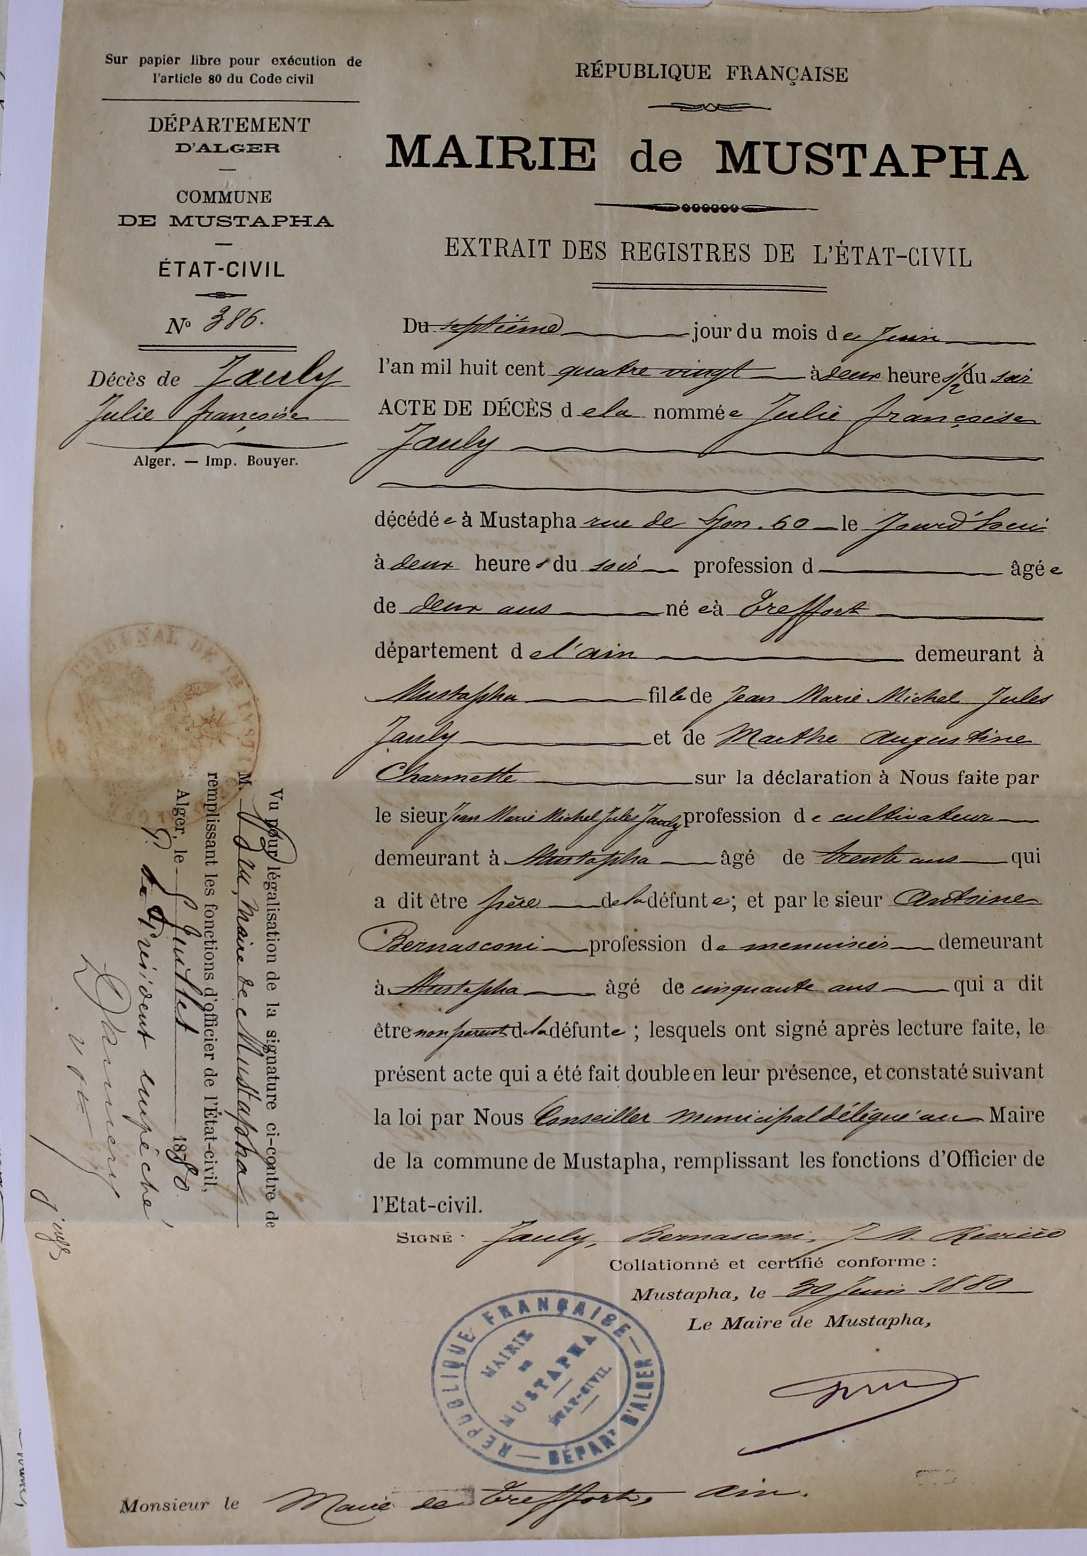 Sur papier libre pour exécution de
l'article 80 du Code civil
DÉPARTEMENT
D'ALGER
COMMUNE
DE MUSTAPHA
ÉTAT-CIVIL
No 386.
Décès de Jauly
Julie françoise
Alger. — Imp. Bouyer.
RÉPUBLIQUE FRANÇAISE
MAIRIE de MUSTAPHA
EXTRAIT DES REGISTRES DE L'ÉTAT-CIVIL
Du septième jour du mois de Juin
l'an mil huit cent quatre vingt à deux heures 1/2 du soir
ACTE DE DÉCÈS de la nommée Julie françoise
Jauly
décédée à Mustapha rue de Lyon. 60 le Jourd'hui
à deux heures du soir profession d âgée
de deux ans née à Treffort
département de l'ain demeurant à
Mustapha fille de Jean Marie Michel Jules
Jauly et de Marthe augustine
Charmette sur la déclaration à Nous faite par
le sieur Jean Marie Michel Jules Jauly profession de cultivateur
demeurant à Mustapha âgé de trente ans qui
a dit être père de la défunte; et par le sieur Antoine
Bernasconi profession de menuisier demeurant
à Mustapha âgé de cinquante ans qui a dit
être non parent de la défunte; lesquels ont signé après lecture faite, le
présent acte qui a été fait double en leur présence, et constaté suivant
la loi par Nous Conseiller municipal délégué au Maire
de la commune de Mustapha, remplissant les fonctions d'Officier de
l'Etat-civil.
SIGNÉ: Jauly, Bernasconi, J. M.
Collationné et certifié conforme:
Mustapha, le 30 Juin 1880
Le Maire de Mustapha,
RÉPUBLIQUE FRANÇAISE — DÉPART. D'ALGER
MAIRIE
DE
MUSTAPHA
ÉTAT-CIVIL
Monsieur le Maire de Treffort, ain.
TRIBUNAL DE 1RE INST
Vu pour légalisation de la signature ci-contre de
M. Maire de Mustapha
remplissant les fonctions d'officier de l'État-civil,
Alger, le Juillet 1880.
P. Le Président empêché
juge